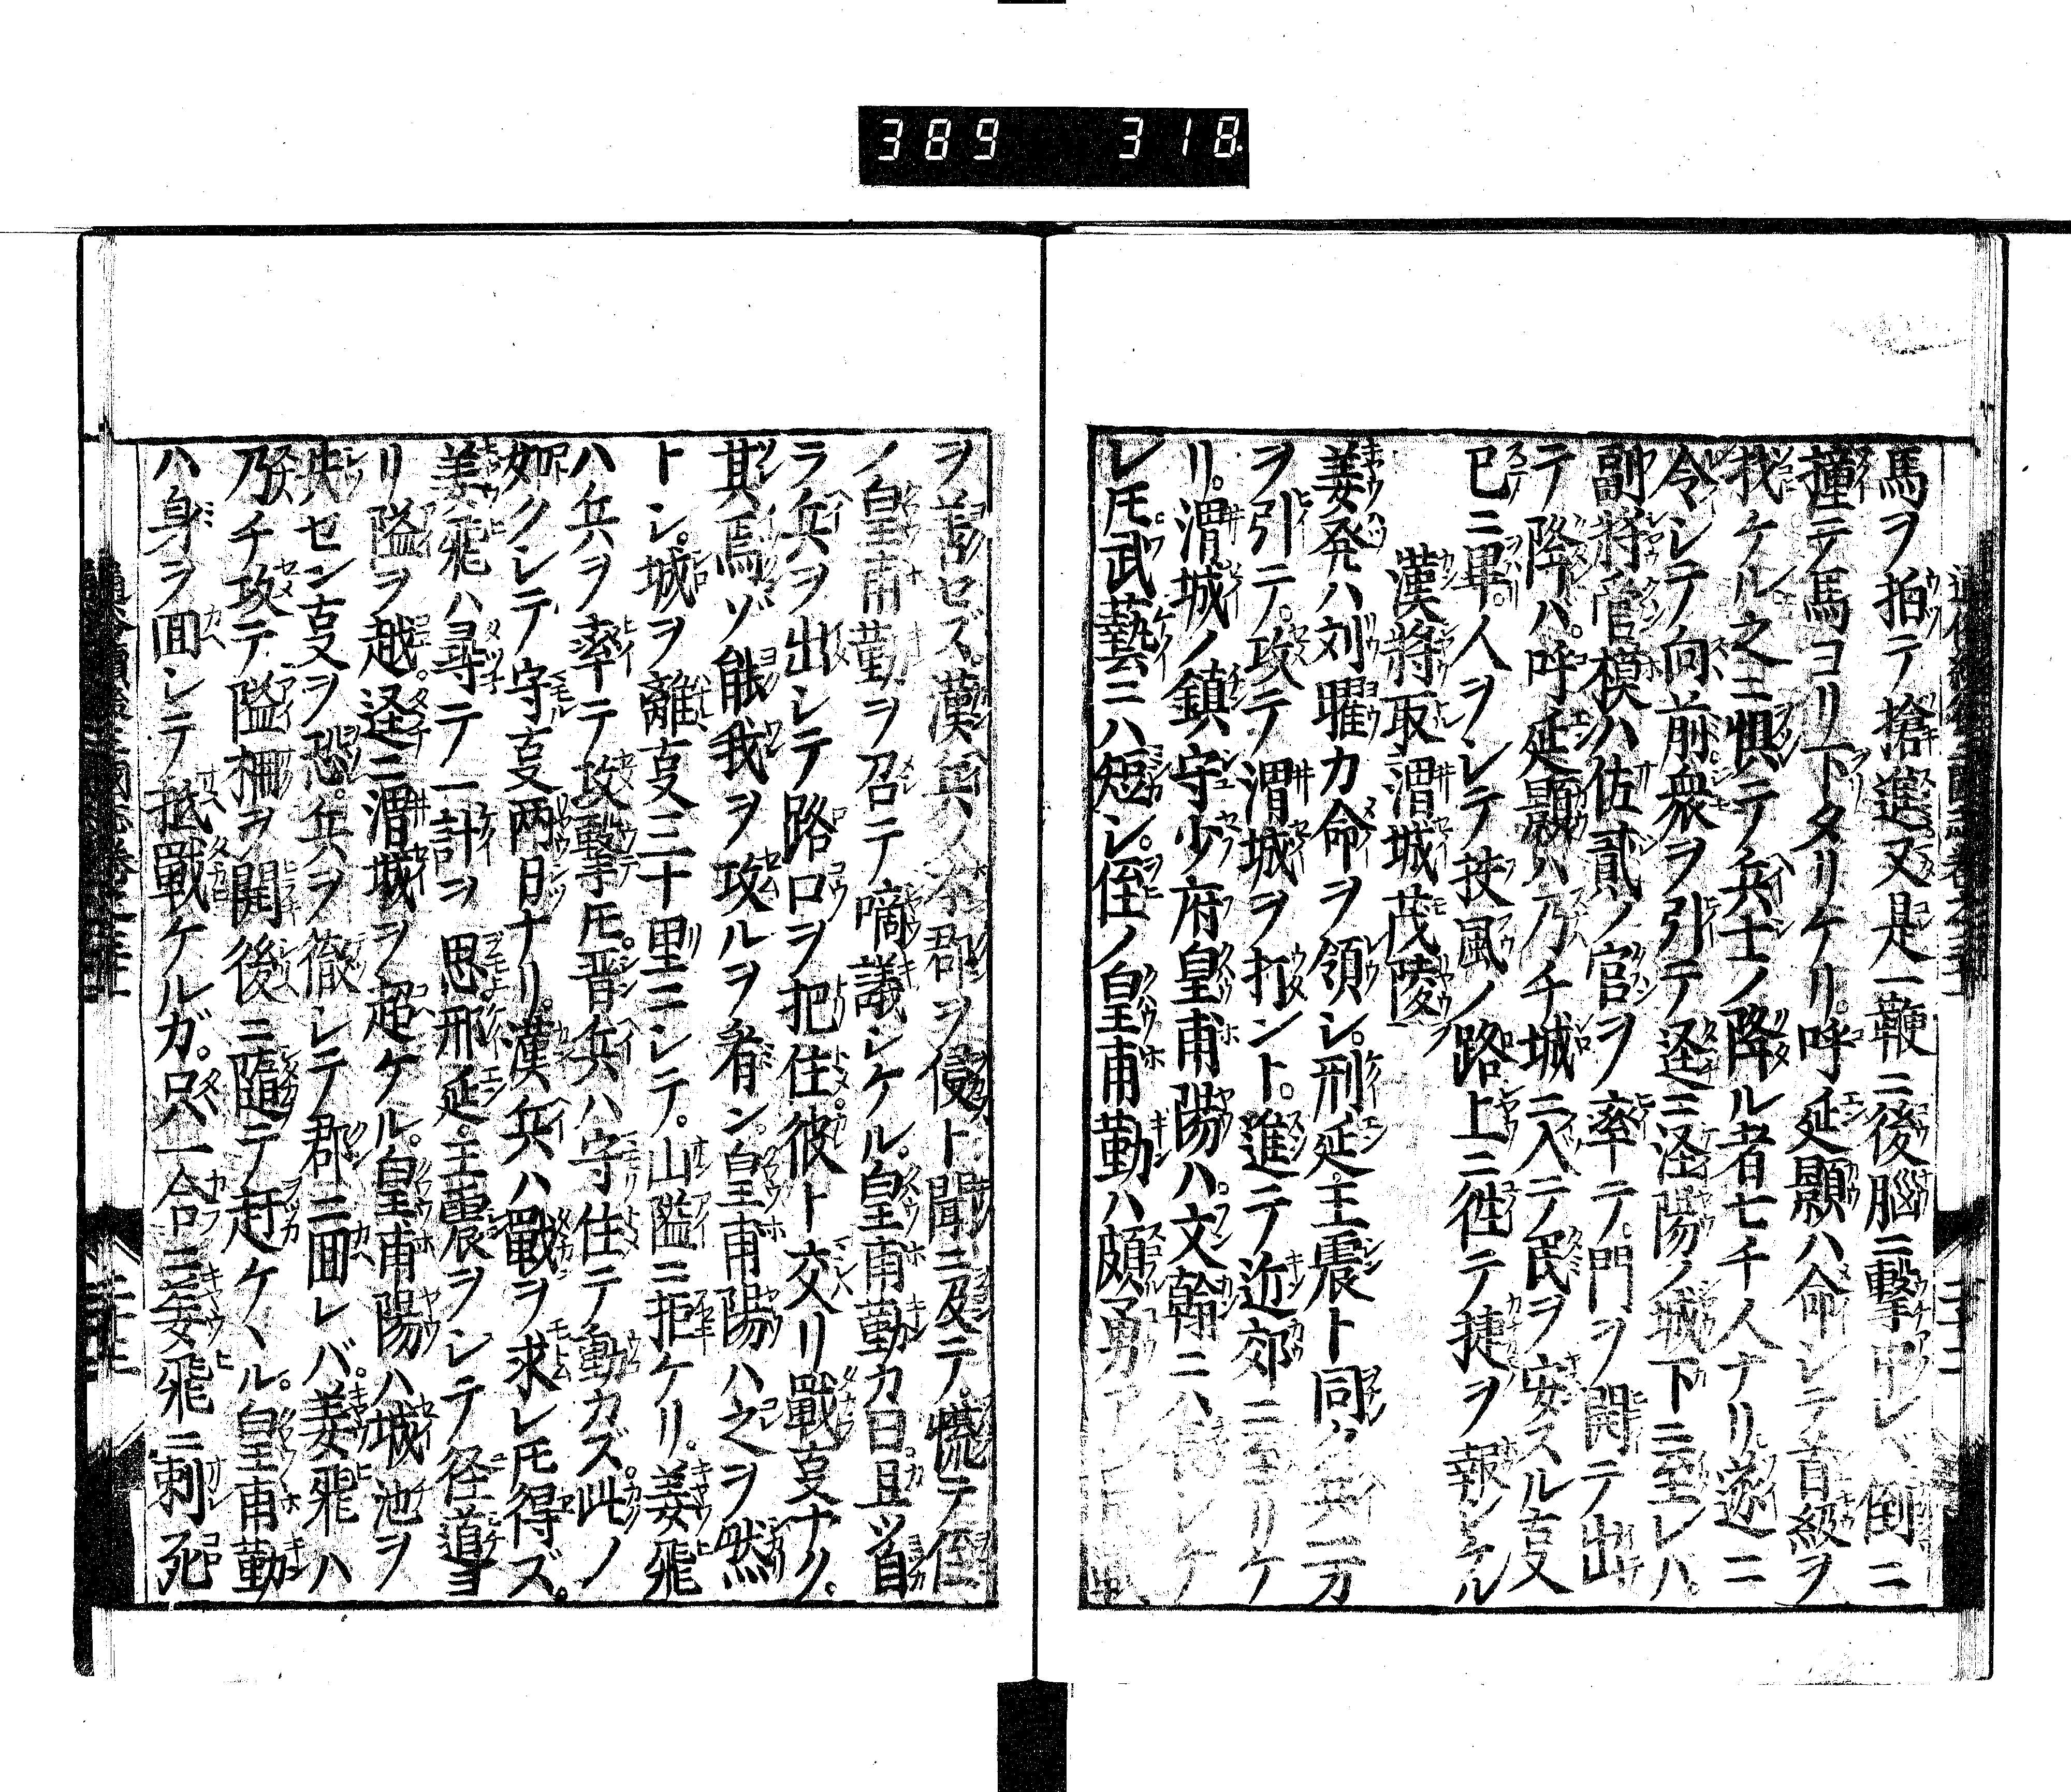 389 318
馬ヲ拍テ搶進又是一鞭ニ後脳ニ撃中レバ倒ニ
撞テ馬コリ下タリケリ。呼延顥ハ命レテ首級ヲ
找ケル之ニ懼テ兵士ノ降ル者七千人ナリ遂ニ
令レテ向前衆ヲ引テ逕ニ涇陽ノ城下ニ至レハ。
副将官模ハ佐貳ノ官ヲ率テ。門ヲ開テ出
テ降ハ。呼延顥ハ乃チ城ニ入テ民ヲ安スル叓
已ニ畢。人ヲシテ扶風ノ路上ニ徃テ捷ヲ報シケル
漢將取渭城茂陵
姜発ハ刘曜カ命ヲ領シ。刑延王震ト同ク兵一万
ヲ引テ。攻テ渭城ヲ打ント。進テ近郊ニ至リケ
リ。渭城ノ鎮守少府皇甫陽ハ。文翰ニハ シケ
レ𪜈武藝ニハ短シ。侄ノ皇甫勤ハ頗勇ア
ヲ善セズ。漢兵ノ本郡ヲ侵ト聞ニ及テ。慌テ侄
ノ皇甫勤ヲ召テ啇議シケル。皇甫勤カ曰。且ツ自
ラ兵ヲ出シテ路口ヲ把住彼ト交リ戰叓ナク。
其焉ゾ能我ヲ攻ルヲ看ン。皇甫陽ハ之ヲ然
トシ。城ヲ離叓三十里ニシテ。山隘ニ拒ケリ。姜飛
ハ兵ヲ率テ攻撃𪜈。晋兵ハ守住テ動カズ。此ノ
如クシテ守叓两日ナリ。漢兵ハ戰ヲ求レ𪜈得ズ。
姜飛ハ尋テ一計ヲ思刑延。王震ヲシテ径道ヨ
リ隘ヲ越。逕ニ渭城ヲ超ケル。皇甫陽ハ城池ヲ
失セン叓ヲ恐。兵ヲ徹シテ郡ニ囬レバ。姜飛ハ
乃チ攻テ隘柵ヲ開後ニ隨テ赶ケヽル。皇甫勤
ハ身ヲ囬シテ抵戰ケルガ。只一合ニ姜飛ニ刺死